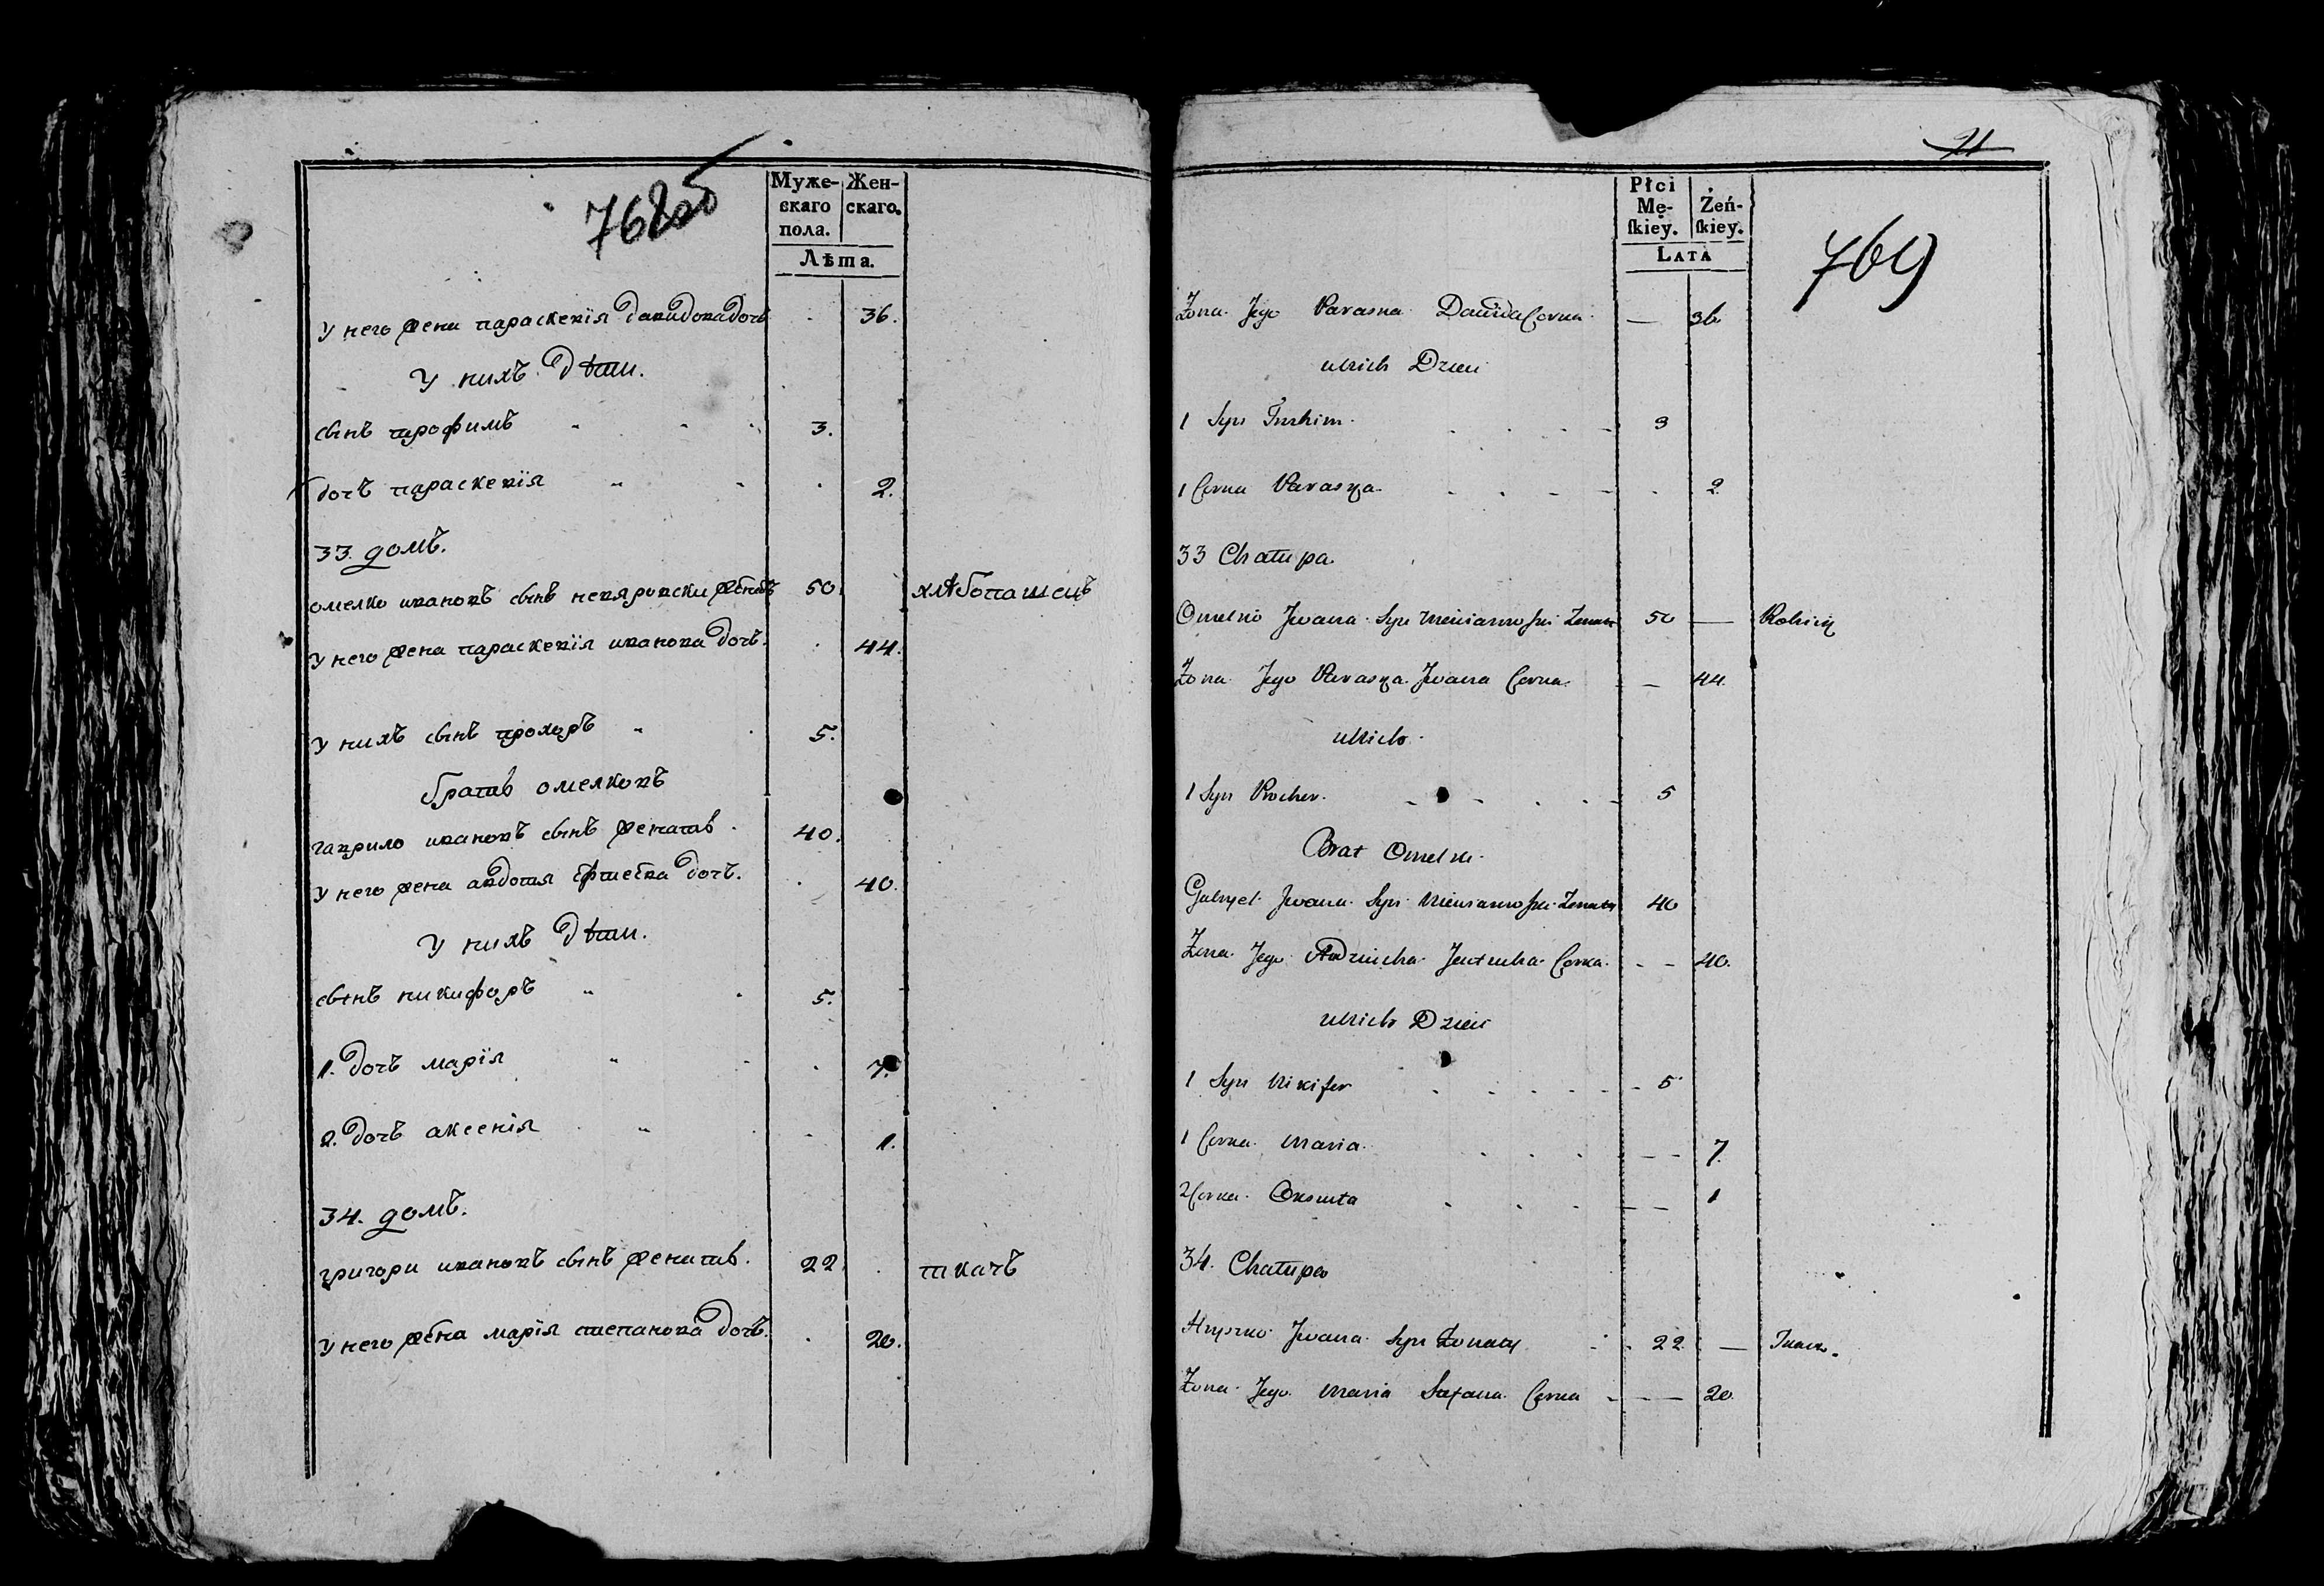 768 об
Муже-
скаго
пола.
Жен-
скаго.
Лѣта.
у него жена параскевія давидова дочь . 36.
у нихъ дѣти.
сынъ трофимъ 3.
дочь параскевія . 2.
33. домъ.
омелко ивановъ сынъ невяровски женатъ 50. хлѣбопашецъ
у него жена параскевія иванова дочь. . 44.
у нихъ сынъ прохоръ 5.
братъ омелковъ
гаврило ивановъ сынъ женатъ. 40.
у него жена авдотя дочь. . 40.
у нихъ дѣти.
сынъ никифоръ 5.
1. дочь марія . 7.
2. дочь аксенія . 1.
34. домъ.
григори ивановъ сынъ женатъ. 22. ткачъ
у него жена марія степанова дочь. . 20.
21
Płci
Mę-
ſkiey.
Żeń-
ſkiey.
LATA
769
Żona Jego Paraska Dawida Corka — 36
u Nich Dzieci
1 Syn 3
1 Corka Paraska 2
33 Chałupa
Omelko Jwana Syn Niewiarowski Żonaty 50 — Rolnik
Żona Jego Paraska Jwana Corka — 44
u Nich
1 Syn Prochor 5
Brat Omelki
Gabryel Jwana Syn Niewiarowski Żonaty 40
Żona Jego Corka — 40
u Nich Dzieci
1 Syn Nikifor 5
1 Corka Maria — 7
2 Corka 1
34. Chałupa
Hryszko Jwana Syn Żonaty 22 — Tkacz
Żona Jego Maria Stefana Corka — 20